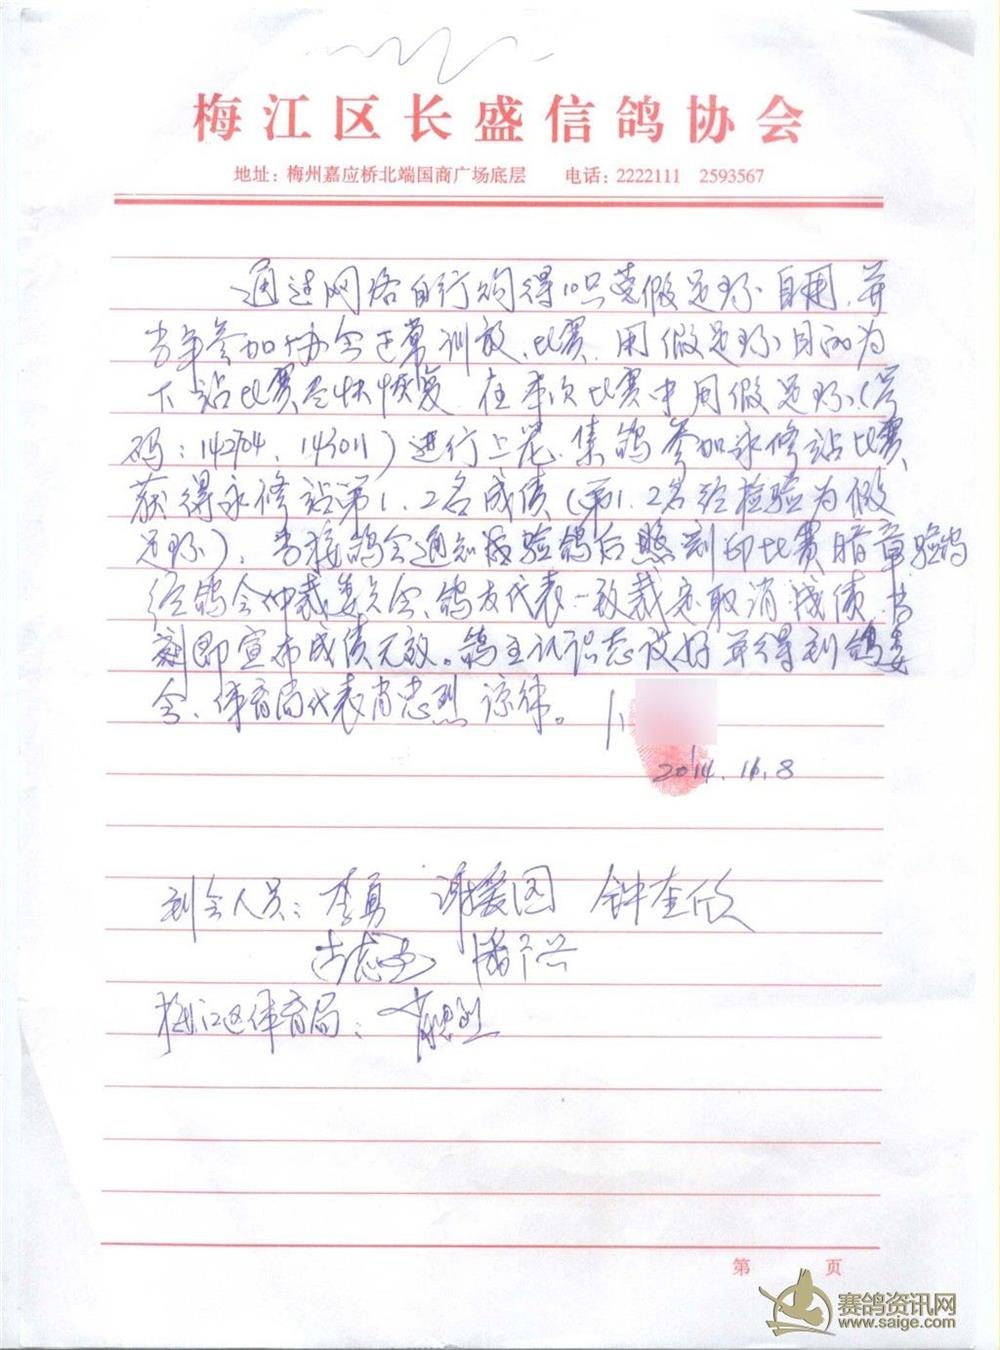 梅江区长盛信鸽协会
地址：梅州嘉应桥北端国商广场底层 电话：2222111 2593567
通过网络自行购得10只假足环自用，并
当年参加协会正常训放、比赛，用假足环目的为
下站比赛尽快恢复 在本次比赛中用假足环（号
码：142704、143011）进行上笼，集鸽参加永修站比赛，
获得永修站第1.2名成绩（第1.2名经检验为假
足环），当接鸽会通知验鸽后照刻印比赛暗章验鸽
经鸽会仲裁委员会、鸽友代表一致裁定取消成绩，当
刻即宣布成绩无效。鸽主认识态度好并得到鸽委
会、体育局代表肖忠烈谅解。
2014.11.8
到会人员：李勇 谢援图 钟奎欣
古志
梅江区体育局：肖忠烈
第 页
赛鸽资讯网
www.saige.com